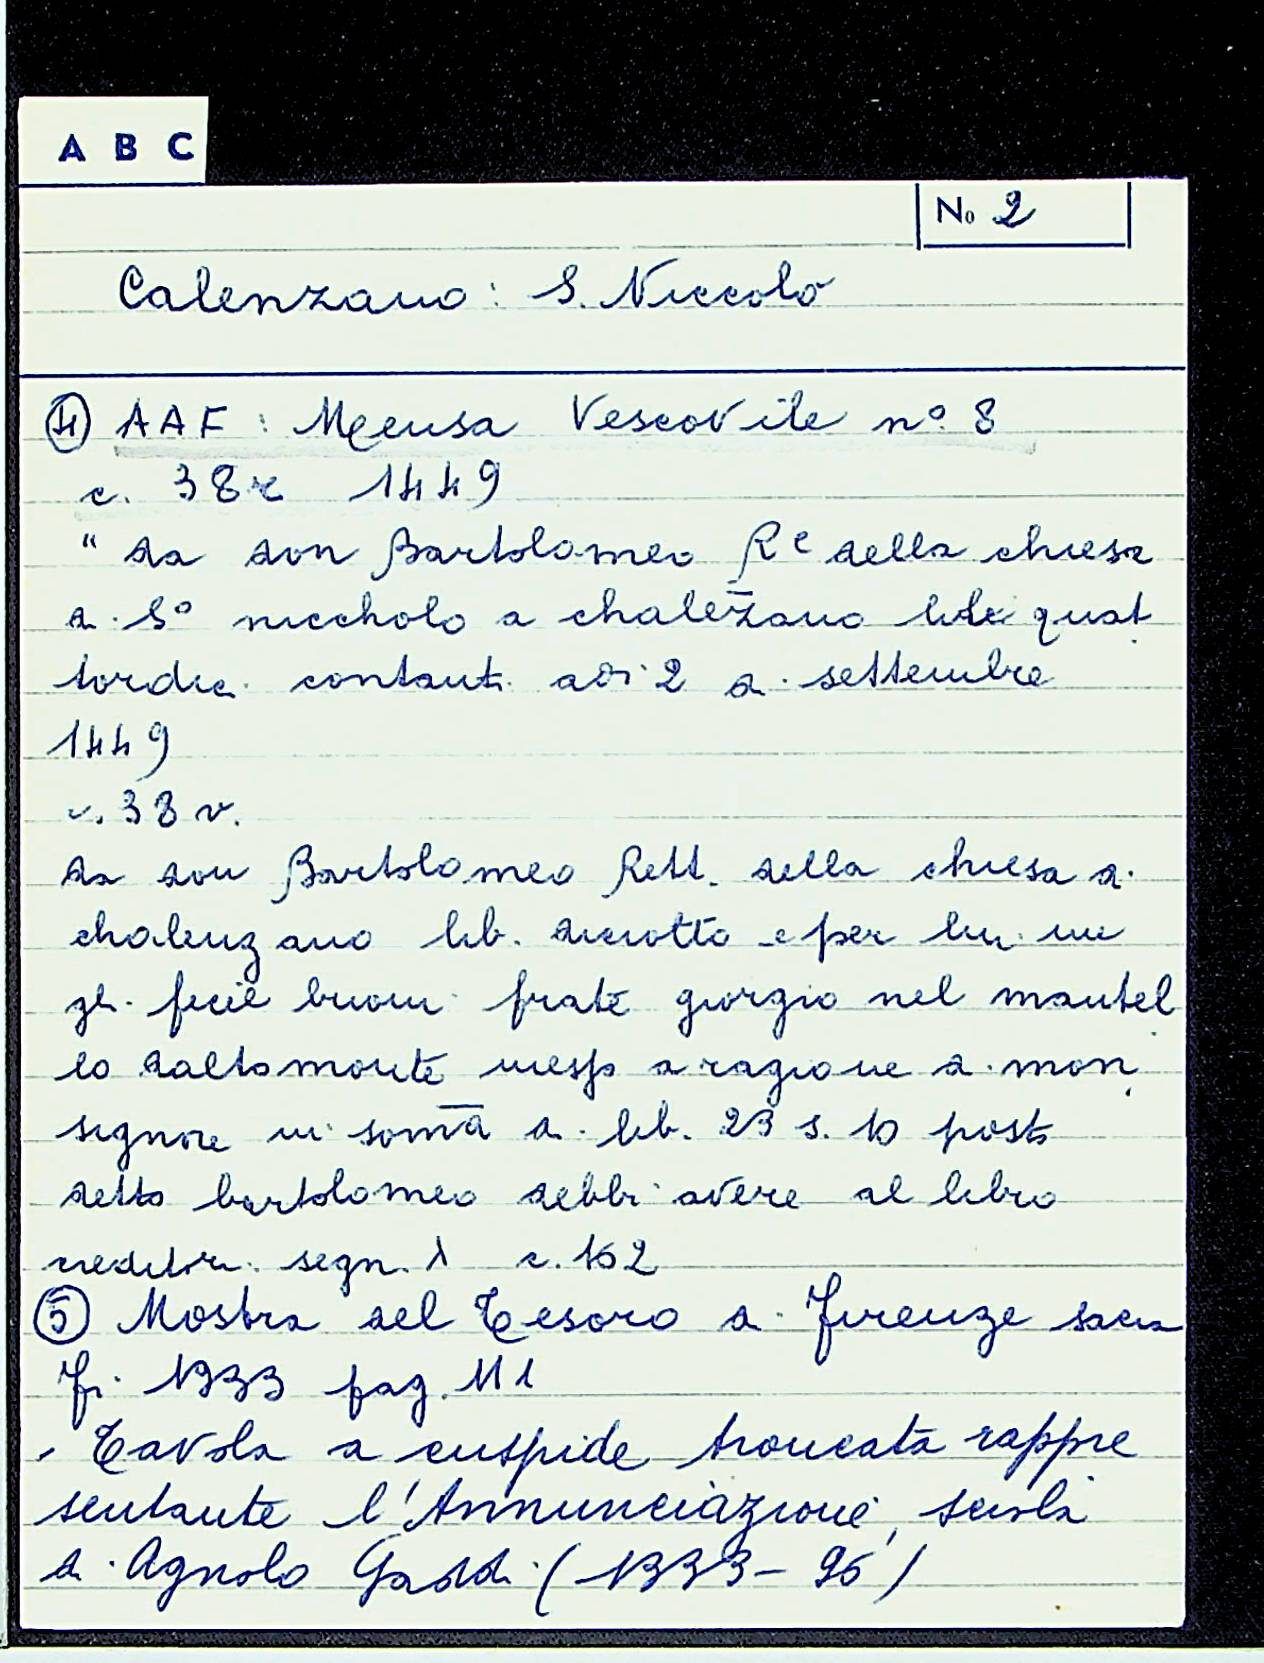 A B C
No 2
Calenzano: S. Niccolò
4 AAF: Mensa Vescovile n° 8
c. 38r 1449
" da don Bartolomeo Re della chiesa
di S° niccholo a chaleza̅no lbr quat
tordici contanti adi 2 di settembre
1449
c. 38 v.
da don Bartolomeo Rett. della chiesa di
chalenzano lib. diciotto e per lui mi
gli fecie buoni frate giorgio nel mantel
lo daltomonte a ragione di mon
signore in soma̅ di lib. 23 s. 10 posto
detto bartolomeo debbi avere al libro
creditori segn. c. 162
5 Mostra del Tesoro di Firenze sacra
Fi. 1933 pag. 111
Tavola a cuspide troncata rappre
sentante l'Annunciazione, scuola
di Agnolo Gaddi (1333-96)